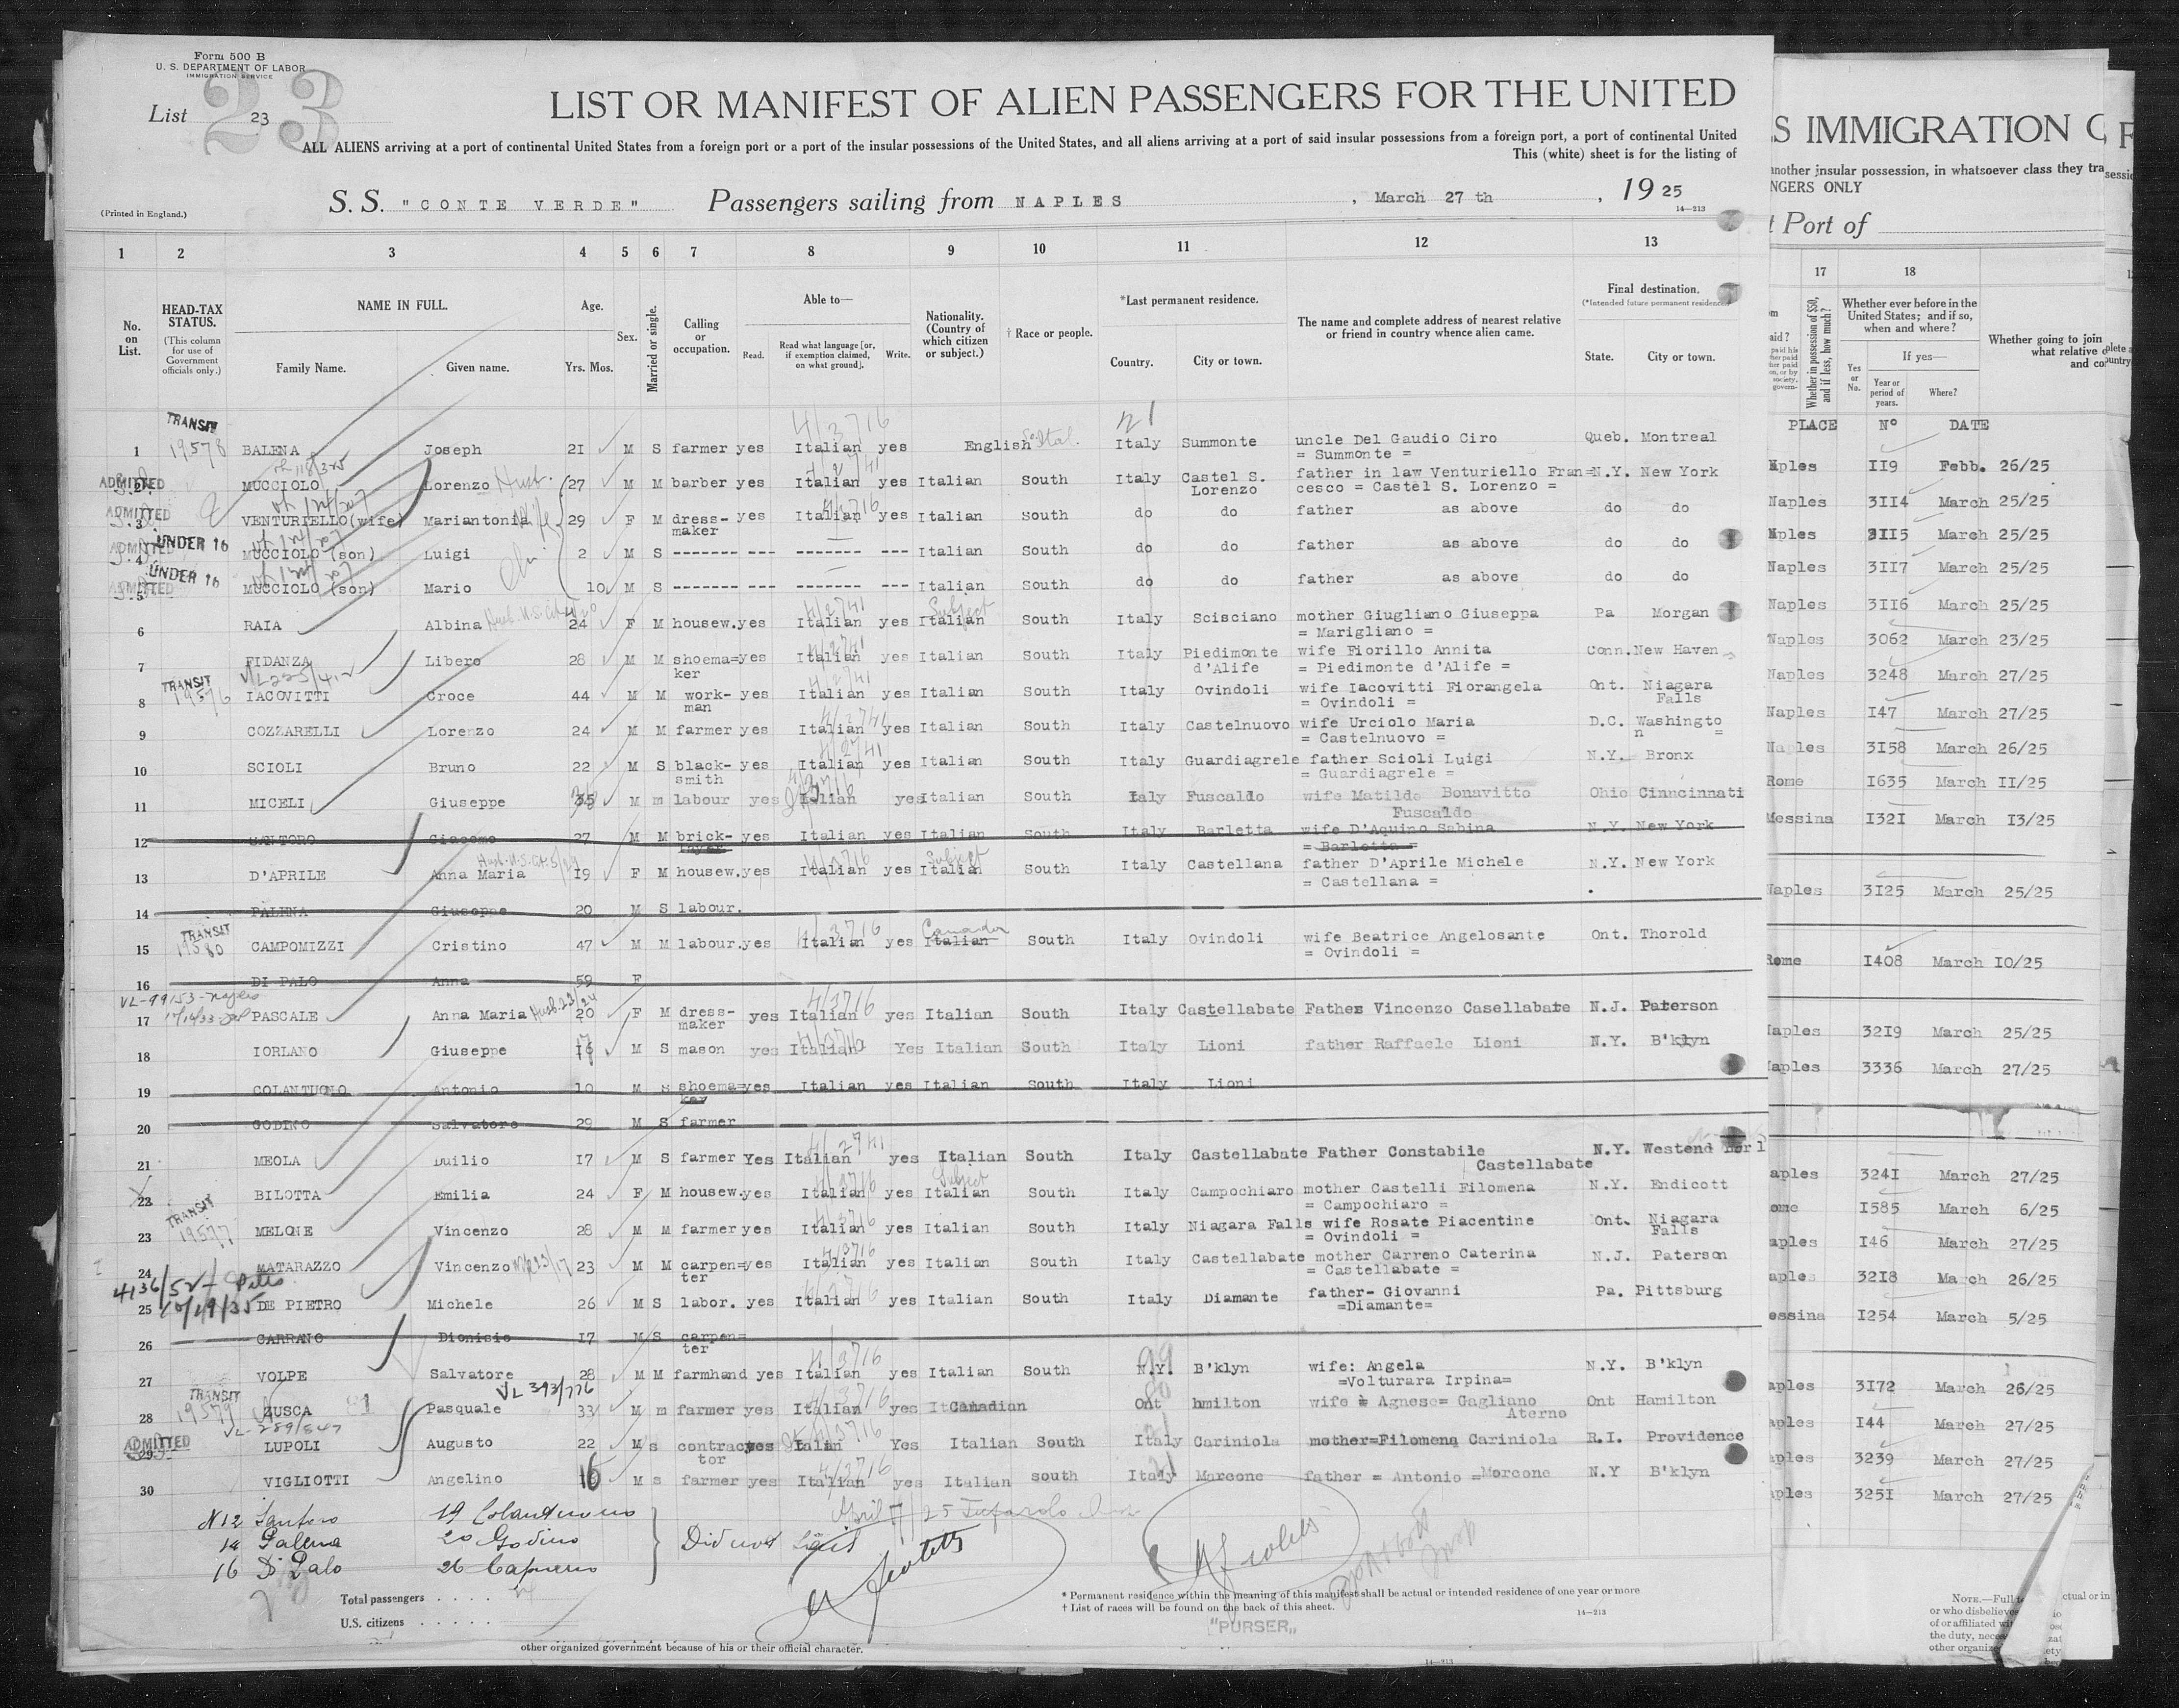 Form 500 B
U. S. DEPARTMENT OF LABOR
IMMIGRATION SERVICE
List 23
23
LIST OR MANIFEST OF ALIEN PASSENGERS FOR THE UNITED
ALL ALIENS arriving at a port of continental United States from a foreign port or a port of the insular possessions of the United States, and all aliens arriving at a port of said insular possessions from a foreign port, a port of continental United
This (white) sheet is for the listing of
(Printed in England.)
S. S. "CONTE VERDE" Passengers sailing from NAPLES, March 27 th, 1925
14—213
S IMMIGRATION
another insular possession, in whatsoever class they tra
NGERS ONLY
Port of
1 2 3 4 5 6 7 8 9 10 11 12 13
17 18
No. on List.
HEAD-TAX STATUS.
(This column for use of Government officials only.)
NAME IN FULL.
Family Name. Given name.
Age.
Yrs. Mos.
Sex.
Married or single.
Calling or occupation.
Able to—
Read. Read what language [or, if exemption claimed, on what ground]. Write.
Nationality. (Country of which citizen or subject.)
† Race or people.
*Last permanent residence.
Country. City or town.
The name and complete address of nearest relative or friend in country whence alien came.
Final destination.
(*Intended future permanent residence)
State. City or town.
Whether in possession of $50, and if less, how much?
Whether ever before in the United States; and if so, when and where?
Yes or No. If yes— Year or period of years. Where?
Whether going to join
what relative
PLACE Nº DATE
TRANSIT
1 19578 BALENA Joseph 21 M S farmer yes Italian yes English Italy Summonte uncle Del Gaudio Ciro Queb. Montreal
= Summonte =
ADMITTED
2 MUCCIOLO Lorenzo 27 M M barber yes Italian yes Italian South Italy Castel S. Lorenzo father in law Venturiello Fran= N.Y. New York
cesco = Castel S. Lorenzo =
ADMITTED
3 VENTURIELLO (wife) Mariantonia 29 F M dress-maker yes Italian yes Italian South do do father as above do do
ADMITTED UNDER 16
4 MUCCIOLO (son) Luigi 2 M S ------- --- ------- --- Italian South do do father as above do do
ADMITTED UNDER 16
5 MUCCIOLO (son) Mario 10 M S ------- --- ------- --- Italian South do do father as above do do
6 RAIA Albina 24 F M housew. yes Italian yes Italian South Italy Scisciano mother Giugliano Giuseppa Pa Morgan
= Marigliano =
7 FIDANZA Libero 28 M M shoema=ker yes Italian yes Italian South Italy Piedimonte d'Alife wife Fiorillo Annita Conn. New Haven
= Piedimonte d'Alife =
TRANSIT
8 19576 IACOVITTI Croce 44 M M work-man yes Italian yes Italian South Italy Ovindoli wife Iacovitti Fiorangela Ont. Niagara Falls
= Ovindoli =
9 COZZARELLI Lorenzo 24 M M farmer yes Italian yes Italian South Italy Castelnuovo wife Urciolo Maria D.C. Washingto n
= Castelnuovo =
10 SCIOLI Bruno 22 M S black-smith yes Italian yes Italian South Italy Guardiagrele father Scioli Luigi N.Y. Bronx
= Guardiagrele =
11 MICELI Giuseppe 35 M m labour yes Italian yes Italian South Italy Fuscaldo wife Matilde Bonavitto Ohio Cinncinnati
Fuscaldo
12 SANTORO Giacomo 27 M M brick-layer yes Italian yes Italian South Italy Barletta wife D'Aquino Sabina N.Y. New York
= Barletta =
13 D'APRILE Anna Maria 19 F M housew. yes Italian yes Italian South Italy Castellana father D'Aprile Michele N.Y. New York
= Castellana =
14 PALENA Giuseppe 20 M S labour.
TRANSIT
15 19580 CAMPOMIZZI Cristino 47 M M labour. yes Italian yes Italian Canada South Italy Ovindoli wife Beatrice Angelosante Ont. Thorold
= Ovindoli =
16 DI PALO Anna 59 F
VL-99153-Naples
17 PASCALE Anna Maria 20 F M dress-maker yes Italian yes Italian South Italy Castellabate Father Vincenzo Casellabate N.J. Paterson
18 IORLANO Giuseppe 16 M S mason yes Italian Yes Italian South Italy Lioni father Raffaele Lioni N.Y. B'klyn
19 COLANTUONO Antonio 18 M S shoema=ker yes Italian yes Italian South Italy Lioni
20 GODINO Salvatore 29 M S farmer
21 MEOLA Duilio 17 M S farmer Yes Italian yes Italian South Italy Castellabate Father Constabile N.Y. Westend
Castellabate
22 BILOTTA Emilia 24 F M housew. yes Italian yes Italian South Italy Campochiaro mother Castelli Filomena N.Y. Endicott
= Campochiaro =
TRANSIT
23 19577 MELONE Vincenzo 28 M M farmer yes Italian yes Italian South Italy Niagara Falls wife Rosate Piacentine Ont. Niagara Falls
= Ovindoli =
24 MATARAZZO Vincenzo 23 M M carpen=ter yes Italian yes Italian South Italy Castellabate mother Carreno Caterina N.J. Paterson
= Castellabate =
25 DE PIETRO Michele 26 M S labor. yes Italian yes Italian South Italy Diamante father- Giovanni Pa. Pittsburg
=Diamante=
26 CARRANO Dionisio 17 M S carpen=ter
27 VOLPE Salvatore 28 M M farmhand yes Italian yes Italian South N.Y. B'klyn wife: Angela N.Y. B'klyn
=Volturara Irpina=
TRANSIT
28 19579 ZUSCA Pasquale 33 M m farmer yes Italian yes Canadian Ont hmilton wife Agnese= Gagliano Aterno Ont Hamilton
ADMITTED
29 LUPOLI Augusto 22 M s contractor yes Yes Italian South Italy Cariniola mother=Filomena Cariniola R.I. Providence
30 VIGLIOTTI Angelino 16 M s farmer yes Italian yes Italian south Italy Marcone father = Antonio =Morcone N.Y B'klyn
Naples 119 Febb. 26/25
Naples 3114 March 25/25
Naples 3115 March 25/25
Naples 3117 March 25/25
Naples 3116 March 25/25
Naples 3062 March 23/25
Naples 3248 March 27/25
Naples 147 March 27/25
Naples 3158 March 26/25
Rome 1635 March 11/25
Messina 1321 March 13/25
Naples 3125 March 25/25
Rome 1408 March 10/25
Naples 3219 March 25/25
Naples 3336 March 27/25
aples 3241 March 27/25
ome 1585 March 6/25
aples 146 March 27/25
aples 3218 March 26/25
essina 1254 March 5/25
aples 3172 March 26/25
aples 144 March 27/25
aples 3239 March 27/25
aples 3251 March 27/25
N 12 Santoro 19 Colantuono
14 Palena 20 Godino
16 Di Palo 26 Carrano
Did not
Total passengers . . . .
U.S. citizens . . . . .
* Permanent residence within the meaning of this manifest shall be actual or intended residence of one year or more
† List of races will be found on the back of this sheet.
14—213
"PURSER"
other organized government because of his or their official character.
NOTE.—Full
or who disbelieves
of or affiliated
the duty,
other
14—213